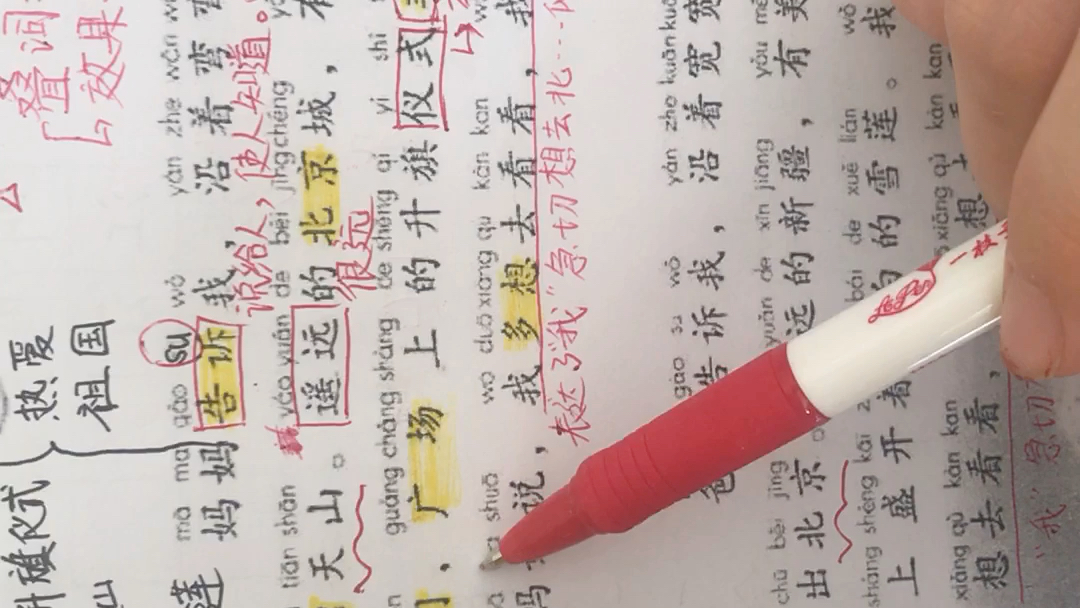 叠词:
效果:
热爱
祖国
升旗仪式
山
mā ma gào su wǒ yán zhe wān
莲 妈妈告诉我,沿着弯
说给人,使人知道。
tiān shān yáo yuǎn de běi jīng chéng
天山。遥远的北京城,有
很远
guǎng chǎng shàng de shēng qí yí shì
,广场上的升旗仪式
shuō wǒ duō xiǎng qù kàn kan
妈 说,我多想去看看,我
表达了“我”急切想去北…
gào su wǒ yán zhe kuān kuān
爸 告诉我,沿着宽宽
chū běi jīng yuǎn de xīn jiāng yǒu měi
出北京。 远的新疆,有美
shàng shèng kāi bái de xuě lián wǒ
上盛开着 的雪莲。我
xiǎng qù kàn kan xiǎng qù kàn kan
想去看看, 想
“我”急切
一枝